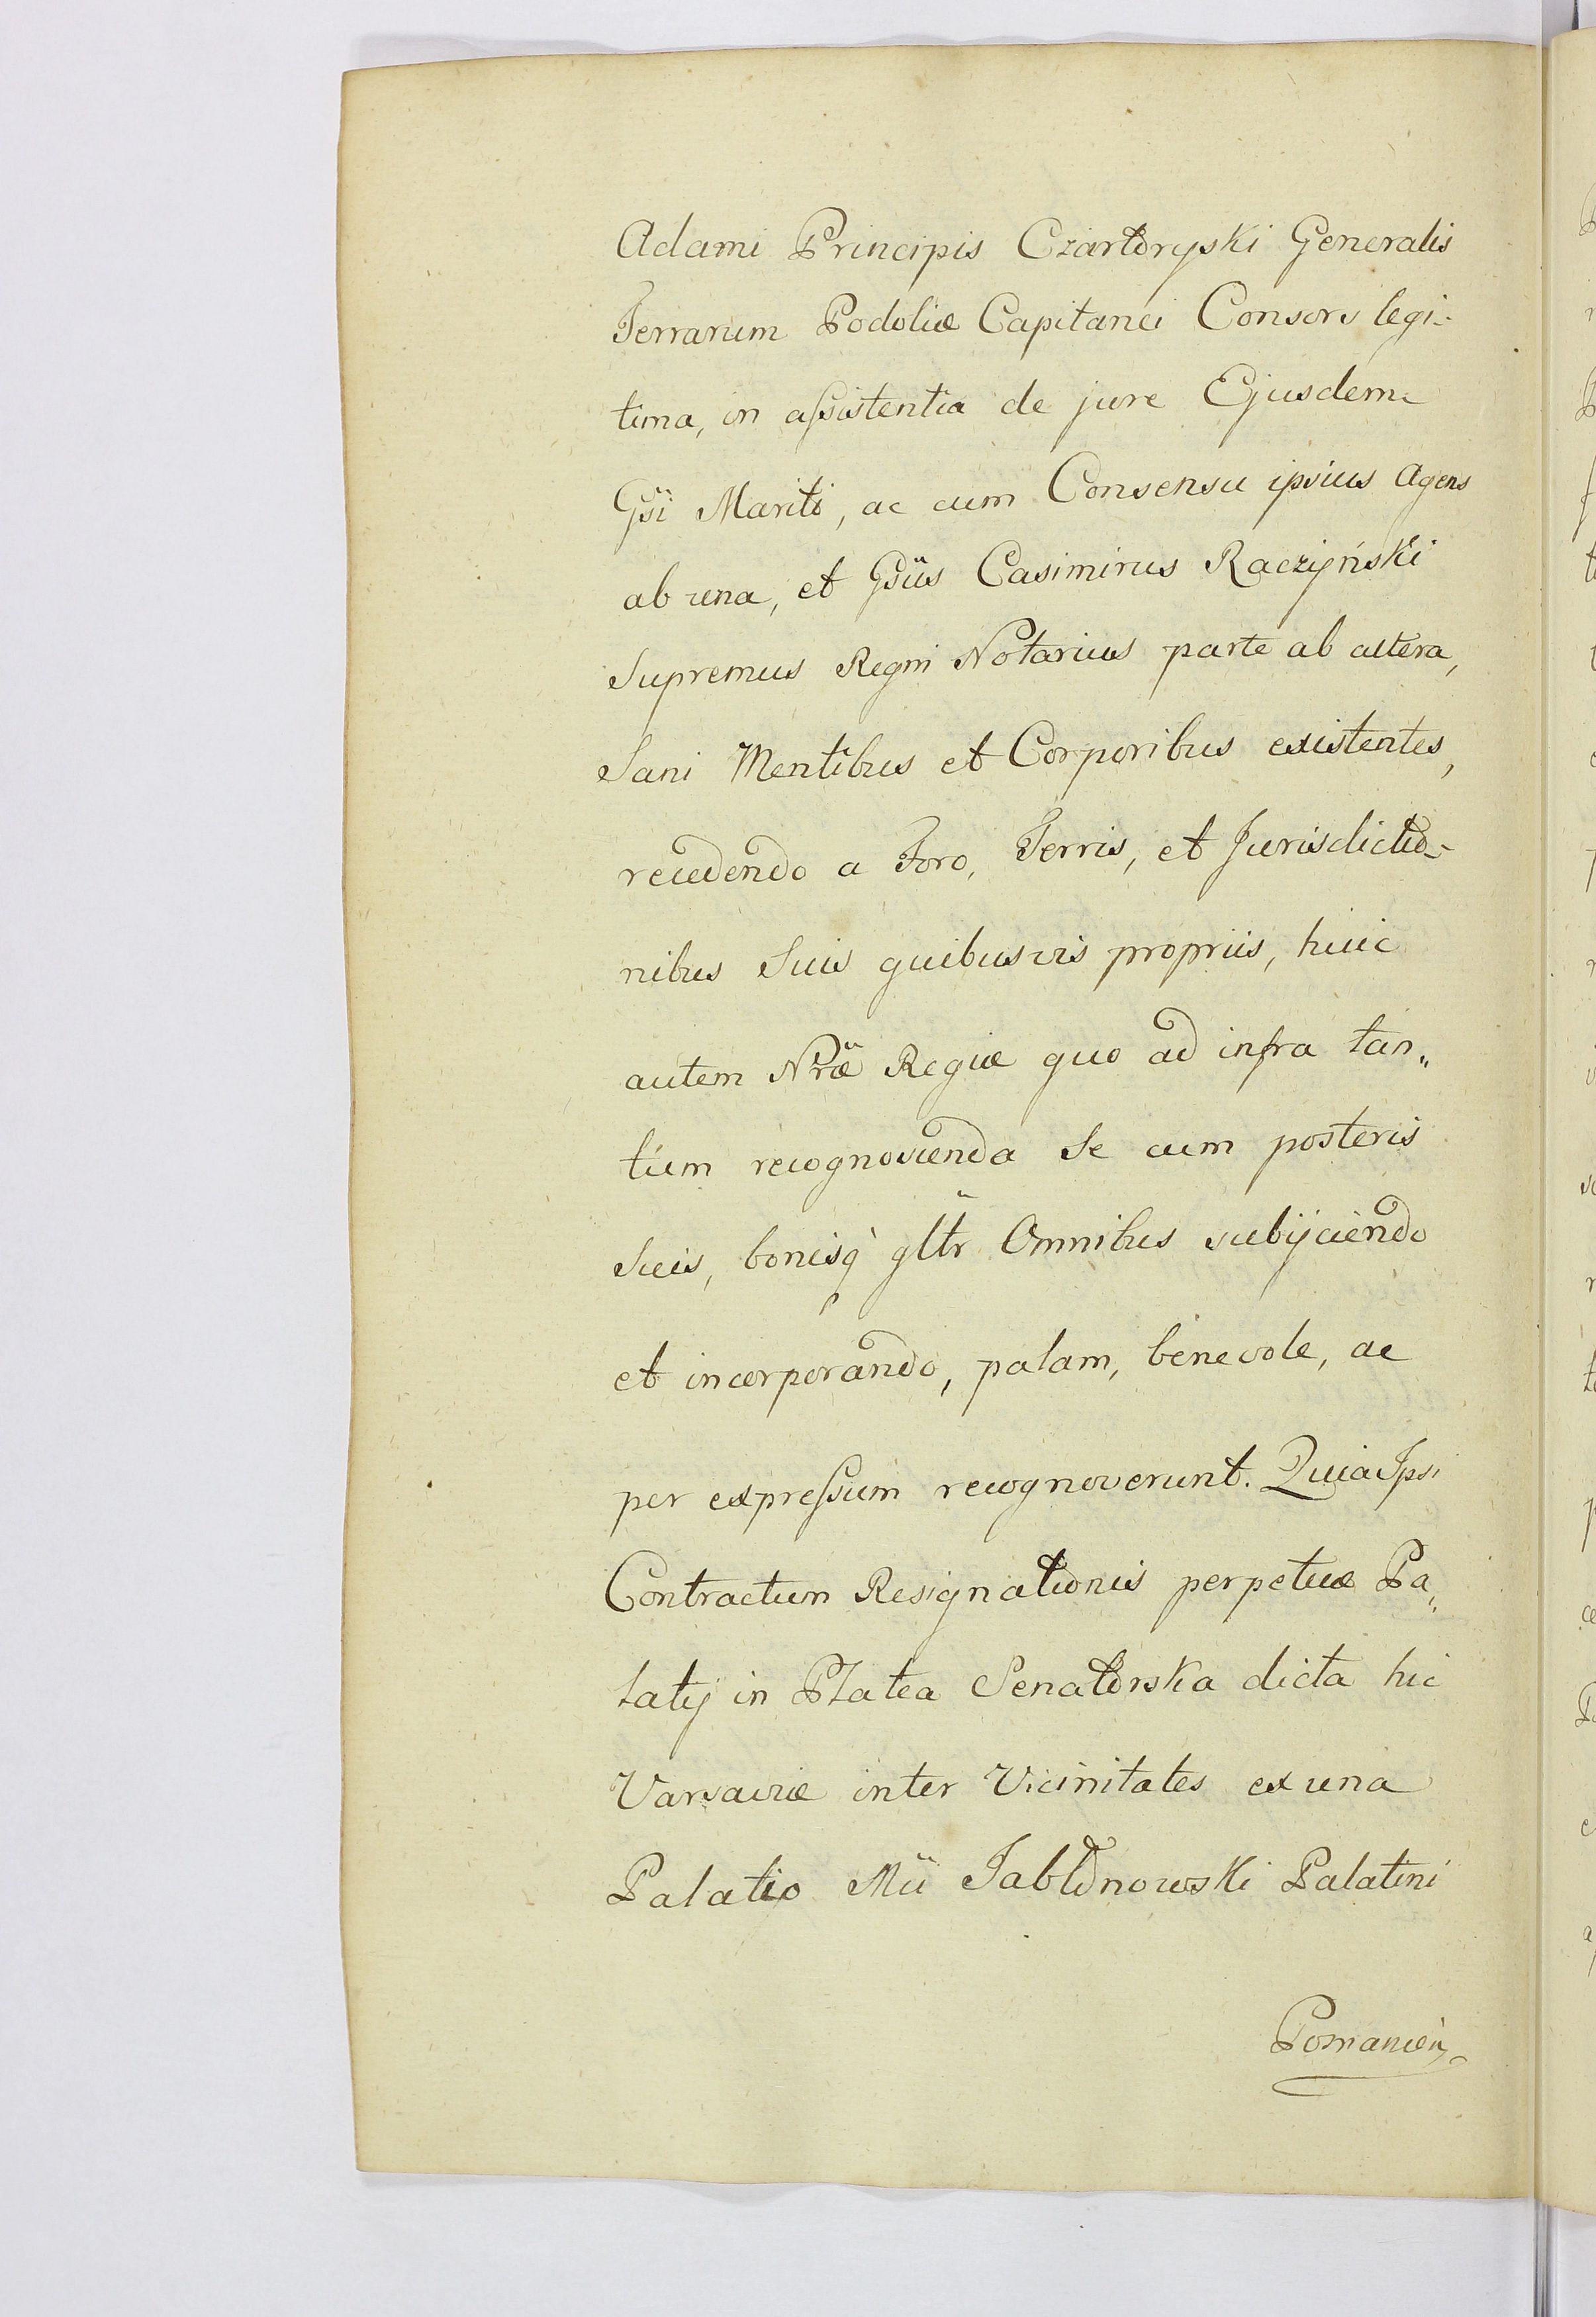 Adami Principis Czartoryski Generalis
Terrarum Podoliæ Capitanei Consors legi-
tima, in assistentia de jure Ejusdem
Gsi Mariti, ac cum Consensu ipsius Agens
ab una, et Gsus Casimirus Raczyński
Supremus Regni Notarius parte ab altera,
Sani Mentibus et Corporibus existentes,
recedendo a Foro, Terris, et Jurisdictio-
nibus Suis quibusvis propriis, huic
autem Nræ Regiæ quo ad infra tan„
tum recognoscenda Se cum posteris
Suis, bonisq' gltr Omnibus subijciendo
et incorporando, palam, benevole, ac
per expressum recognoverunt. Quia Ipsi
Contractum Resignationis perpetuæ Pa„
latij in Platea Senatorska dicta hic
Varsaviæ inter Vicinitates ex una
Palatio Mii Jabłonowski Palatini